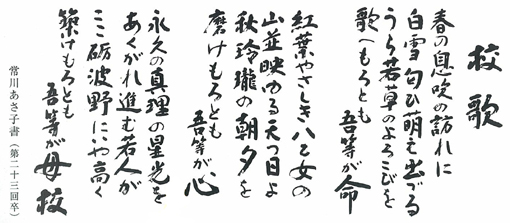 校歌
春の息吹の訪れに
白雪匂ひ萌え出づる
うら若草のよろこびを
歌へもろとも
吾等が命
紅葉やさしき八乙女の
山並映ゆる天つ日よ
秋玲瓏の朝夕を
磨けもろとも
吾等が心
永久の真理の星光を
あくがれ進む若人が
ここ砺波野にいや高く
築けもろとも
吾等が母校
常川あさ子書(第二十三回卒)